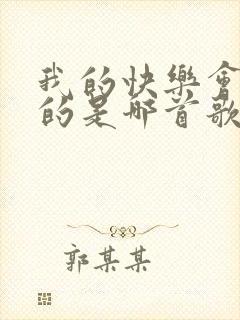 我的快樂會
的是哪首歌
郭某某